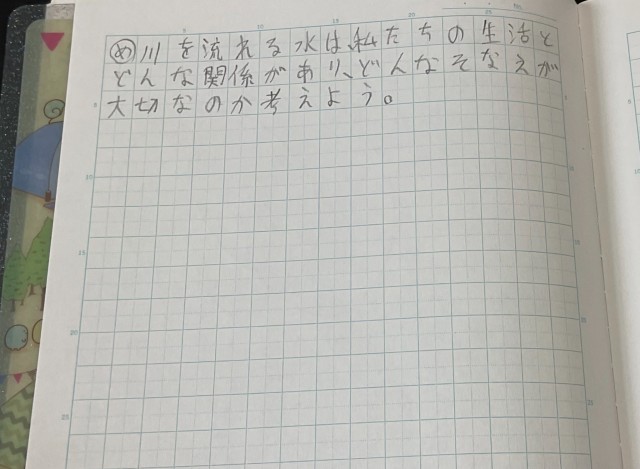 め川を流れる水は、私たちの生活と
どんな関係があり、どんなそなえが
大切なのか考えよう。